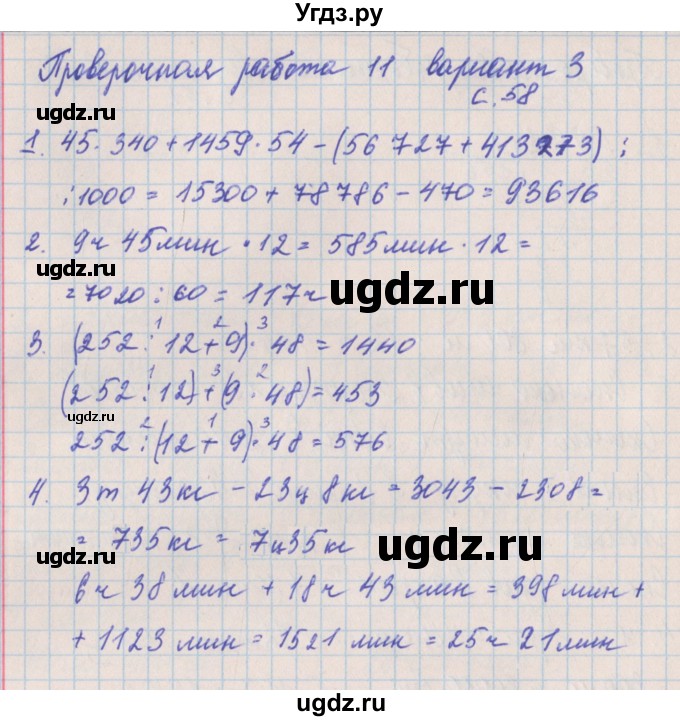 Угдз.ру
Проверочная работа 11 вариант 3
с. 58
ugdz.ru
1. 45 · 340 + 1459 · 54 - (56 727 + 413 273) :
ugdz.ru
: 1000 = 15300 + 78 786 - 470 = 93616
2. 9ч 45мин · 12 = 585мин · 12 =
= 7020 : 60 = 117ч
ugdz.ru
ugdz.ru
1 2 3
3. (252 : 12 + 9) · 48 = 1440
1 3 2
(252 : 12) + (9 · 48) = 453
ugdz.ru
2 1 3
252 : (12 + 9) · 48 = 576
4. 3т 43кг - 23ц 8кг = 3043 - 2308 =
= 735кг = 7ц35кг
ugdz.ru
ugdz.ru
6ч 38мин + 18ч 43мин = 398мин +
+ 1123 мин = 1521 мин = 25ч 21мин
ugdz.ru
ugdz.ru